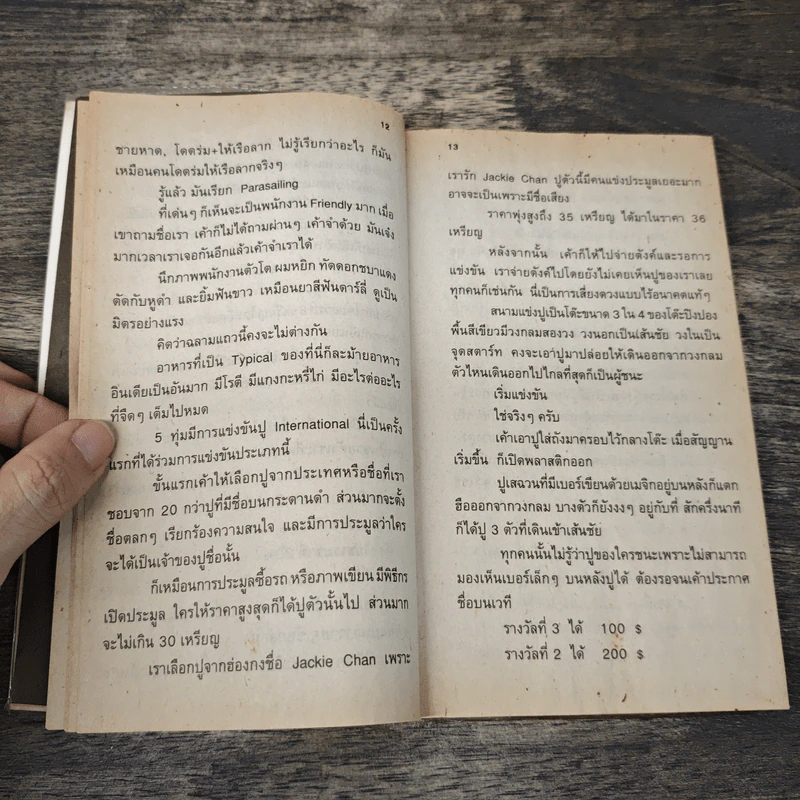 12
ชายหาด, โดดร่ม+ให้เรือลาก ไม่รู้เรียกว่าอะไร ก็มัน
เหมือนคนโดดร่มให้เรือลากจริงๆ
รู้แล้ว มันเรียก Parasailing
ที่เด่นๆ ก็เห็นจะเป็นพนักงาน Friendly มาก เมื่อ
เขาถามชื่อเรา เค้าก็ไม่ได้ถามผ่านๆ เค้าจำด้วย มันเจ๋ง
มากเวลาเราเจอกันอีกแล้วเค้าจำเราได้
นึกภาพพนักงานตัวโต ผมหยิก ทัดดอกชบาแดง
ตัดกับหูดำ และยิ้มฟันขาว เหมือนยาสีฟันดาร์ลี่ ดูเป็น
มิตรอย่างแรง
คิดว่าฉลามแถวนี้คงจะไม่ต่างกัน
อาหารที่เป็น Typical ของที่นี่ก็ละม้ายอาหาร
อินเดียเป็นอันมาก มีโรตี มีแกงกะหรี่ไก่ มีอะไรต่ออะไร
ที่จืดๆ เต็มไปหมด
5 ทุ่มมีการแข่งขันปู International นี่เป็นครั้ง
แรกที่ได้ร่วมการแข่งขันประเภทนี้
ขั้นแรกเค้าให้เลือกปูจากประเทศหรือชื่อที่เรา
ชอบจาก 20 กว่าปูที่มีชื่อบนกระดานดำ ส่วนมากจะตั้ง
ชื่อตลกๆ เรียกร้องความสนใจ และมีการประมูลว่าใคร
จะได้เป็นเจ้าของปูชื่อนั้น
ก็เหมือนการประมูลซื้อรถ หรือภาพเขียน มีพิธีกร
เปิดประมูล ใครให้ราคาสูงสุดก็ได้ปูตัวนั้นไป ส่วนมาก
จะไม่เกิน 30 เหรียญ
เราเลือกปูจากฮ่องกงชื่อ Jackie Chan เพราะ
13
เรารัก Jackie Chan ปูตัวนี้มีคนแข่งประมูลเยอะมาก
อาจจะเป็นเพราะมีชื่อเสียง
ราคาพุ่งสูงถึง 35 เหรียญ ได้มาในราคา 36
เหรียญ
หลังจากนั้น เค้าก็ให้ไปจ่ายตังค์และรอการ
แข่งขัน เราจ่ายตังค์ไปโดยยังไม่เคยเห็นปูของเราเลย
ทุกคนก็เช่นกัน นี่เป็นการเสี่ยงดวงแบบไร้อนาคตแท้ๆ
สนามแข่งปูเป็นโต๊ะขนาด 3 ใน 4 ของโต๊ะปิงปอง
พื้นสีเขียวมีวงกลมสองวง วงนอกเป็นเส้นชัย วงในเป็น
จุดสตาร์ท คงจะเอาปูมาปล่อยให้เดินออกจากวงกลม
ตัวไหนเดินออกไปไกลที่สุดก็เป็นผู้ชนะ
เริ่มแข่งขัน
ใช่จริงๆ ครับ
เค้าเอาปูใส่ถังมาครอบไว้กลางโต๊ะ เมื่อสัญญาน
เริ่มขึ้น ก็เปิดพลาสติกออก
ปูเสฉวนที่มีเบอร์เขียนด้วยเมจิกอยู่บนหลังก็แตก
ฮือออกจากวงกลม บางตัวก็ยังงงๆ อยู่กับที่ สักครึ่งนาที
ก็ได้ปู 3 ตัวที่เดินเข้าเส้นชัย
ทุกคนนั้นไม่รู้ว่าปูของใครชนะเพราะไม่สามารถ
มองเห็นเบอร์เล็กๆ บนหลังปูได้ ต้องรอจนเค้าประกาศ
ชื่อบนเวที
รางวัลที่ 3 ได้ 100 $
รางวัลที่ 2 ได้ 200 $